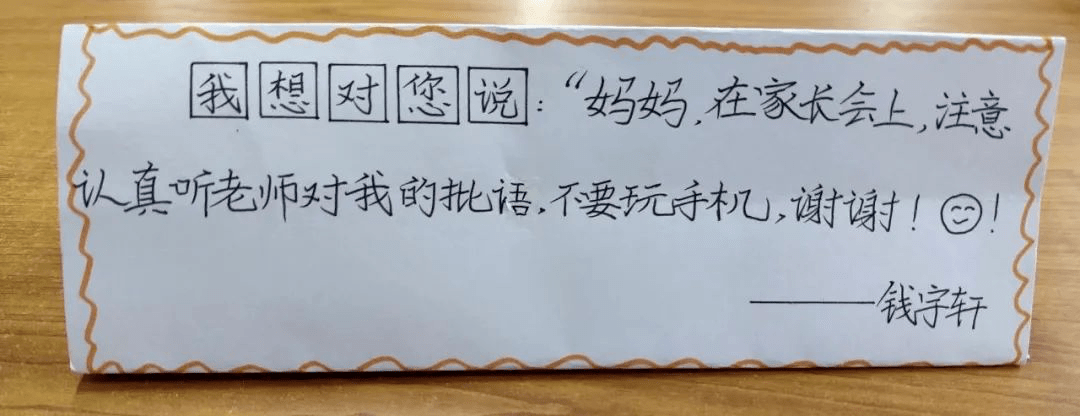 我想对您说：“妈妈，在家长会上，注意
认真听老师对我的批语，不要玩手机，谢谢！😊！
——钱字轩